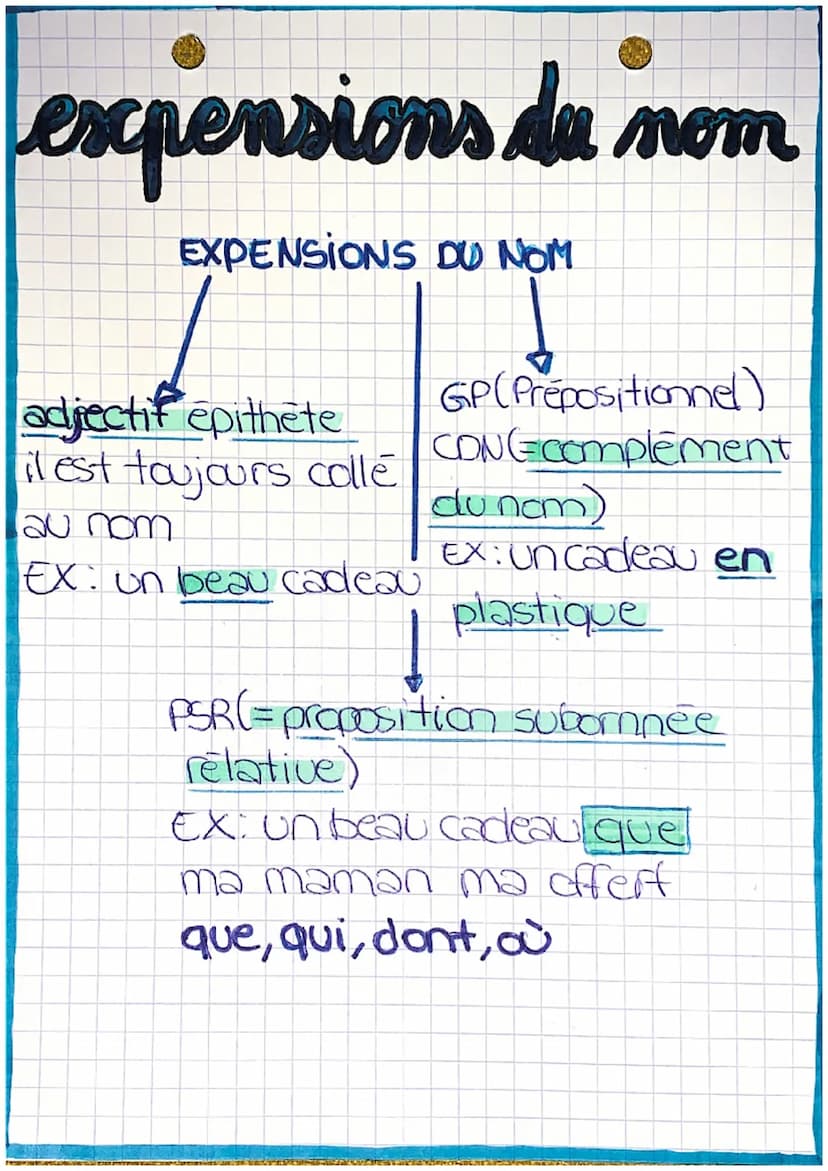 expensions du nom
EXPENSIONS DU NOM
adjectif épithète
il est toujours collé
au nom
EX : un beau cadeau
GP (Prépositionnel)
CDN (=complément
du nom)
EX : un cadeau en
plastique
PSR (= proposition subornnée
rélative)
EX : un beau cadeau que
ma maman ma offert
que, qui, dont, où